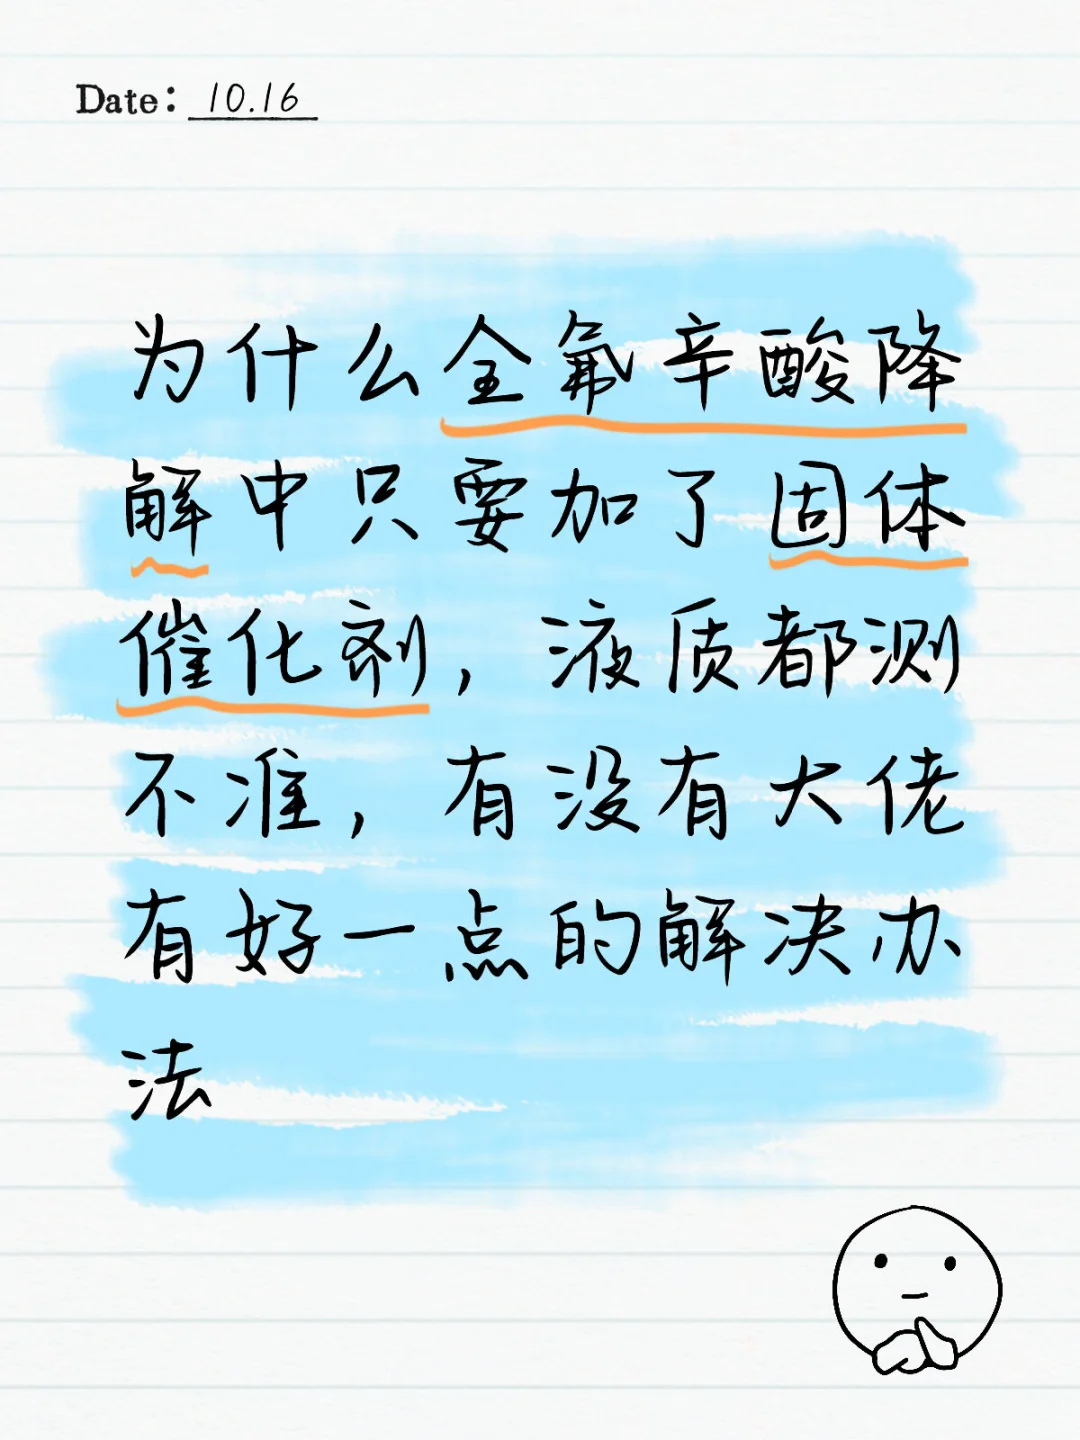 Date: 10.16
为什么全氟辛酸降
解中只要加了固体
催化剂，液质都测
不准，有没有大佬
有好一点的解决办
法